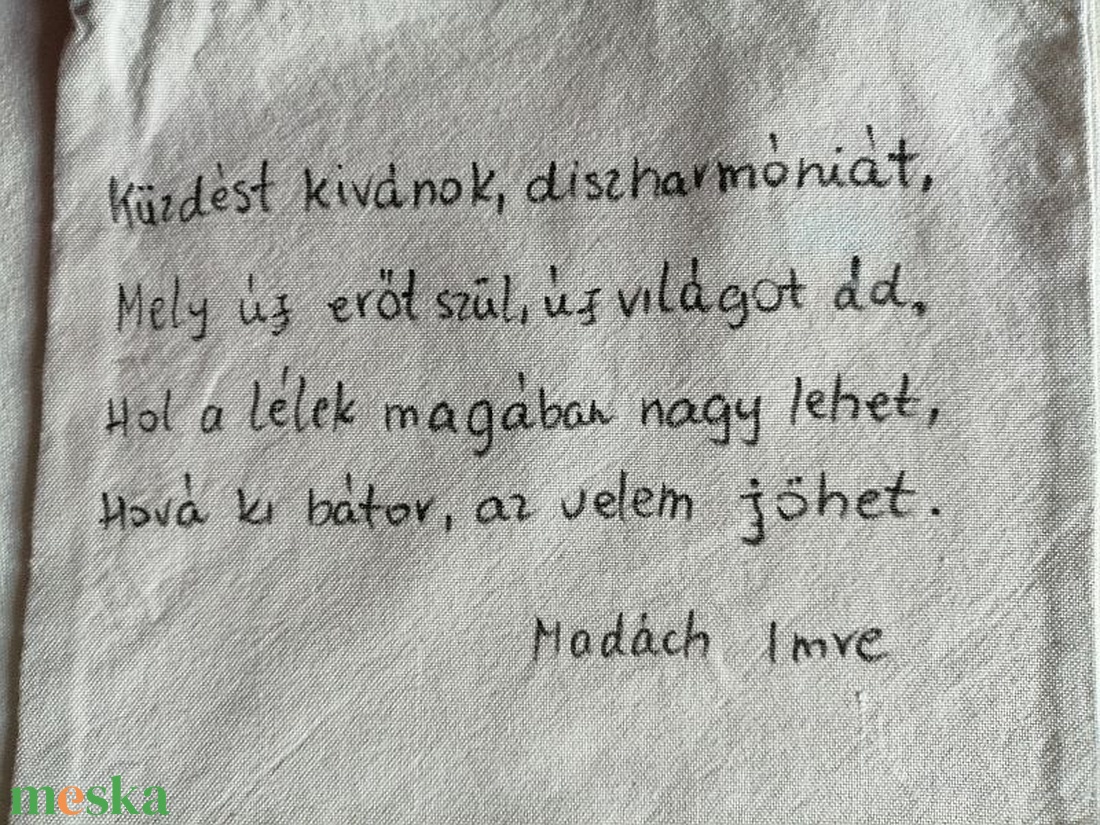 Küzdést kivánok, diszharmóniát,
Mely új erőt szül, új világot ád,
Hol a lélek magában nagy lehet,
Hová ki bátor, az velem jöhet.
Madách Imre
meska